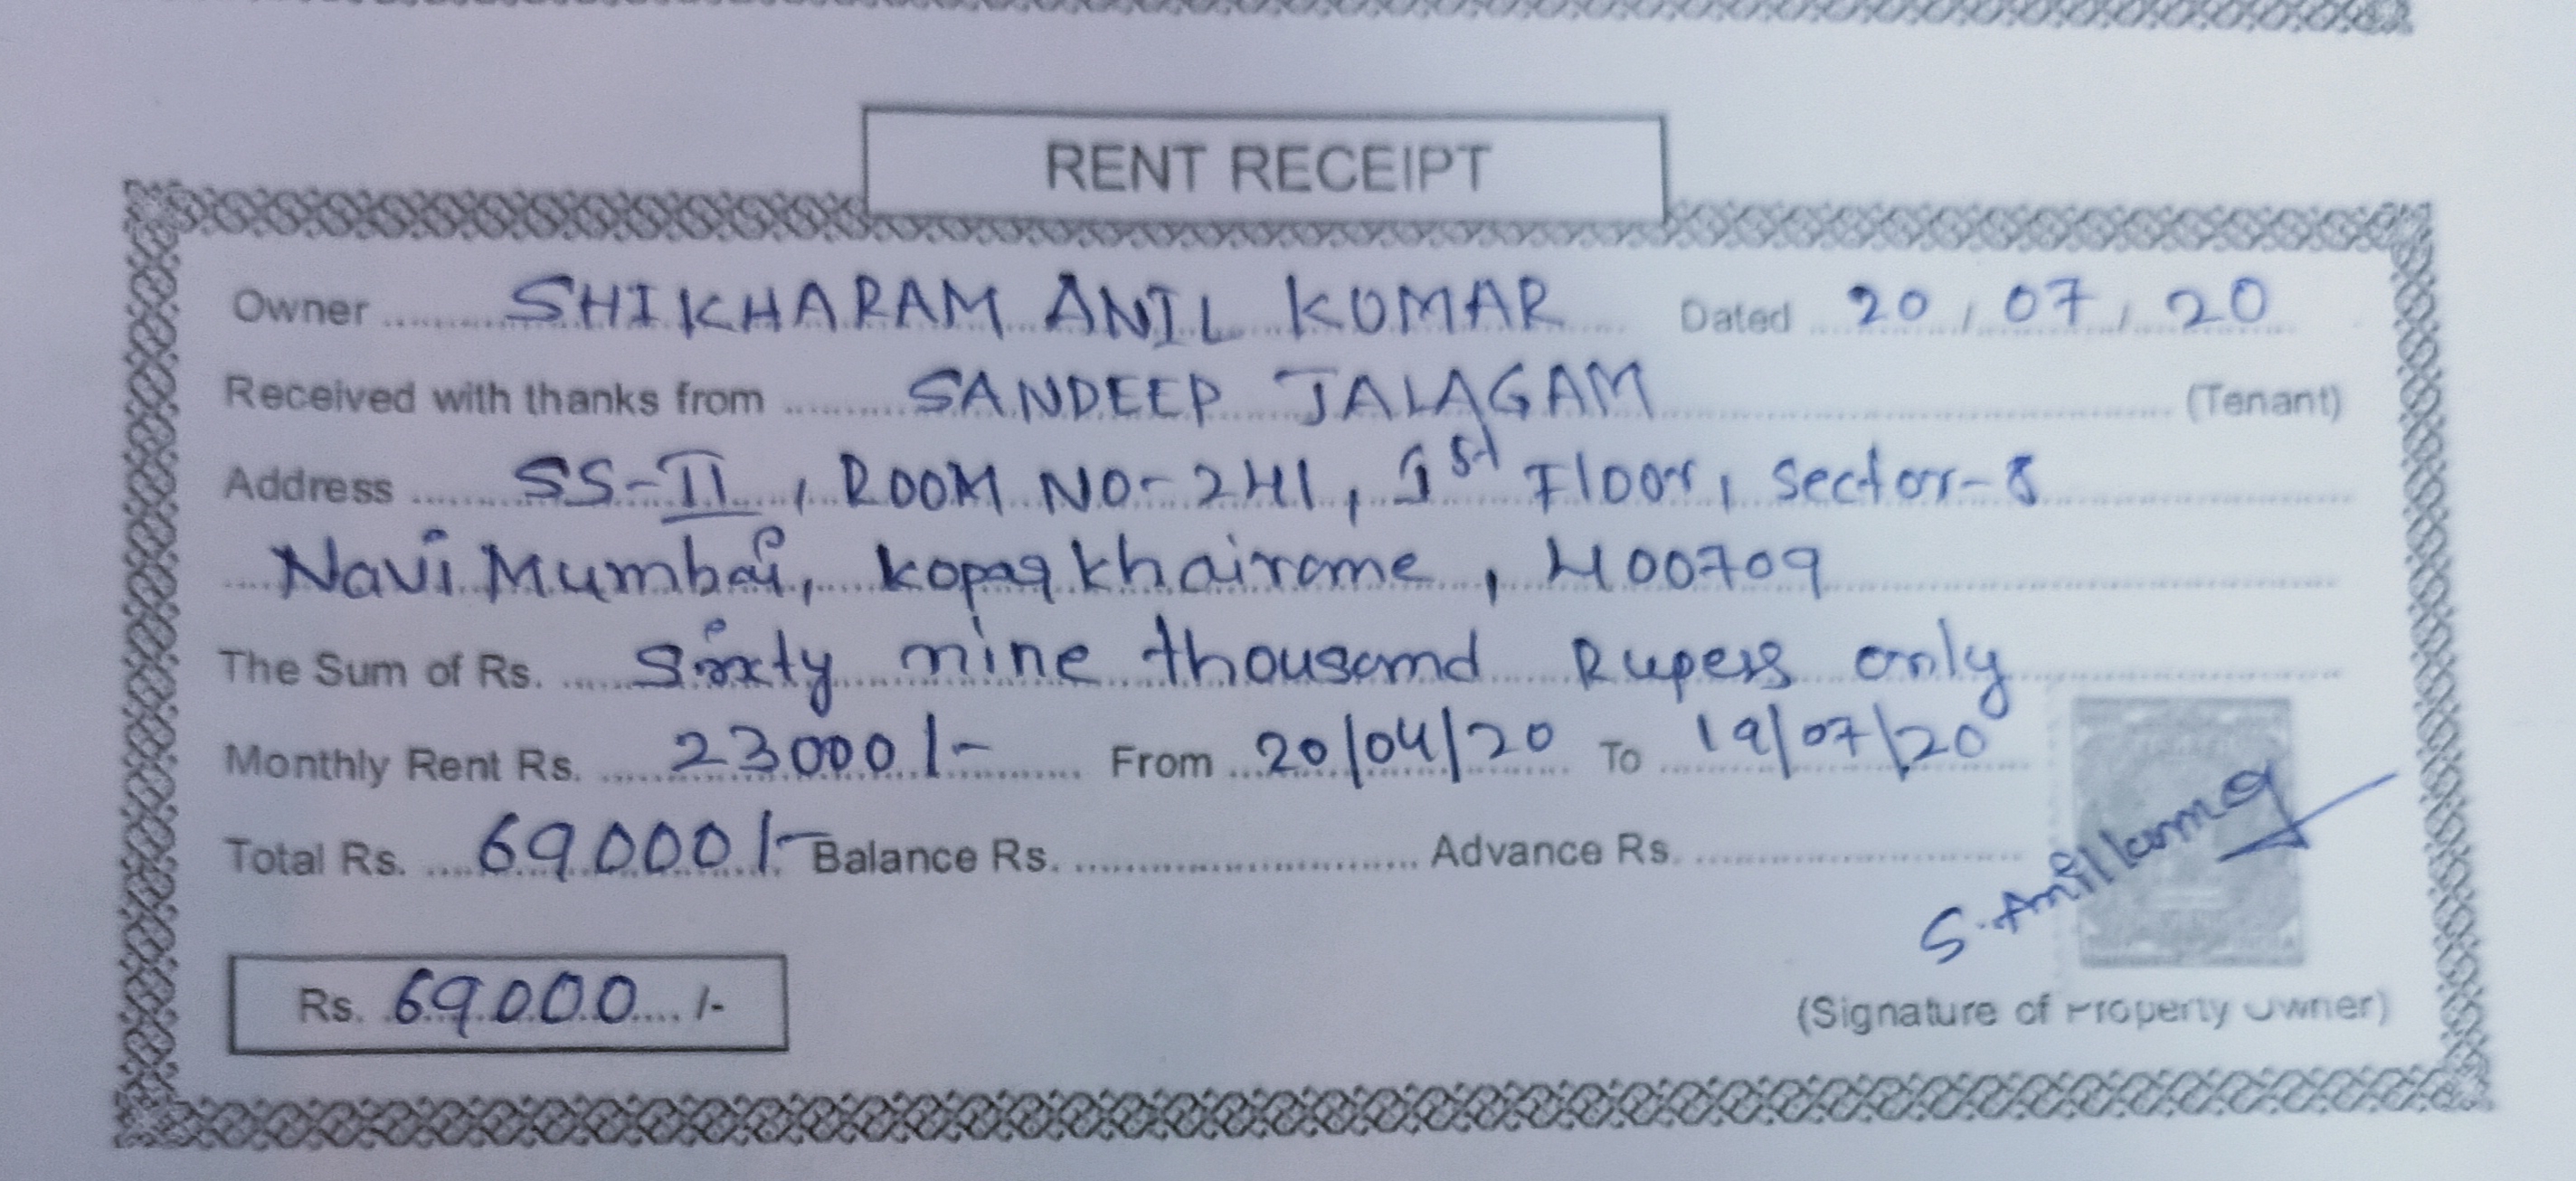 RENT RECEIPT
Owner ........ SHIKHARAM ANIL KUMAR Dated 20 / 07 / 20
Received with thanks from ........ SANDEEP JALAGAM ........ (Tenant)
Address ........ SS-II, ROOM NO-241, 1st Floor, Sector-8
Navi Mumbai, kopaqkhairame, 400709
The Sum of Rs. ..... Sixty nine thousand Rupees only
Monthly Rent Rs. ..... 23000/- ..... From ... 20/04/20 To ... 19/07/20
Total Rs. .... 69000/- Balance Rs. .............................. Advance Rs. ..............................
S. Anil kumar
Rs. 69000.... /-
(Signature of Property Owner)